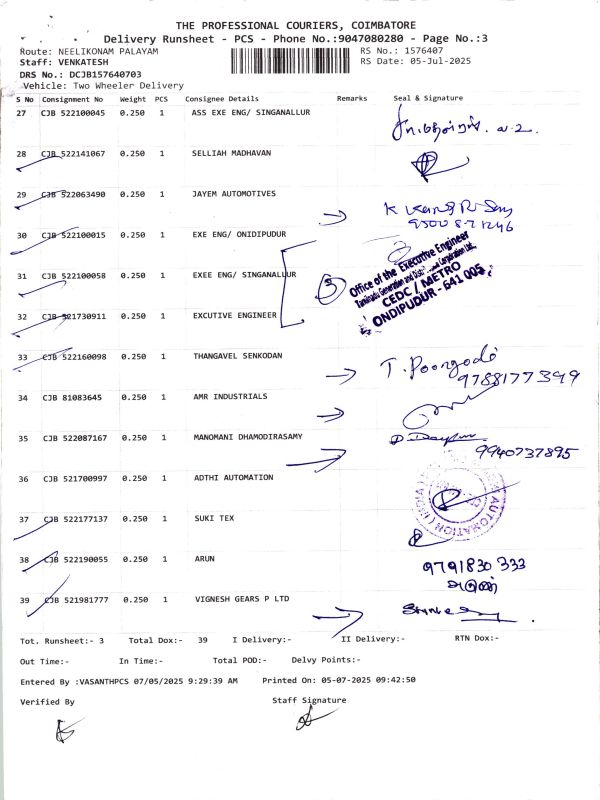 THE PROFESSIONAL COURIERS, COIMBATORE
Delivery Runsheet - PCS - Phone No.:9047080280 - Page No.:3
Route: NEELIKONAM PALAYAM RS No.: 1576407
Staff: VENKATESH RS Date: 05-Jul-2025
DRS No.: DCJB157640703
Vehicle: Two Wheeler Delivery
S No Consignment No Weight PCS Consignee Details Remarks Seal & Signature
27 CJB 522100045 0.250 1 ASS EXE ENG/ SINGANALLUR
28 CJB 522141067 0.250 1 SELLIAH MADHAVAN
29 CJB 522063490 0.250 1 JAYEM AUTOMOTIVES
30 CJB 522100015 0.250 1 EXE ENG/ ONIDIPUDUR
31 CJB 522100058 0.250 1 EXEE ENG/ SINGANALLUR
Office of the Executive Engineer
CEDC / METRO
ONDIPUDUR - 641 005.
32 CJB 521730911 0.250 1 EXCUTIVE ENGINEER
33 CJB 522160098 0.250 1 THANGAVEL SENKODAN
T. Poongodi
9788177399
34 CJB 81083645 0.250 1 AMR INDUSTRIALS
35 CJB 522087167 0.250 1 MANOMANI DHAMODIRASAMY
9940737895
36 CJB 521700997 0.250 1 ADTHI AUTOMATION
37 CJB 522177137 0.250 1 SUKI TEX
38 CJB 522190055 0.250 1 ARUN
9791830 333
அருண்
39 CJB 521981777 0.250 1 VIGNESH GEARS P LTD
Tot. Runsheet:- 3 Total Dox:- 39 I Delivery:- II Delivery:- RTN Dox:-
Out Time:- In Time:- Total POD:- Delvy Points:-
Entered By :VASANTHPCS 07/05/2025 9:29:39 AM Printed On: 05-07-2025 09:42:50
Verified By Staff Signature